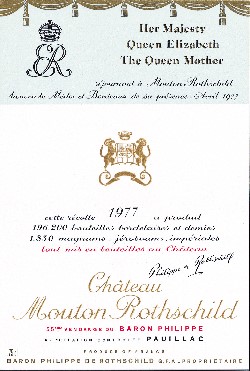 Her Majesty
Queen Elizabeth
The Queen Mother
séjournant à Mouton Rothschild
Avril 1977
cette récolte 1977 a produit
196.200 bouteilles bordelaises et demies
1.850 magnums, jéroboams, impériales
tout mis en bouteilles au Château
Philippe de Rothschild
Château
Mouton Rothschild
55ème VENDANGE DU BARON PHILIPPE
APPELLATION CONTROLEE PAUILLAC
PRODUCE OF FRANCE
BARON PHILIPPE DE ROTHSCHILD G.F.A. PROPRIETAIRE